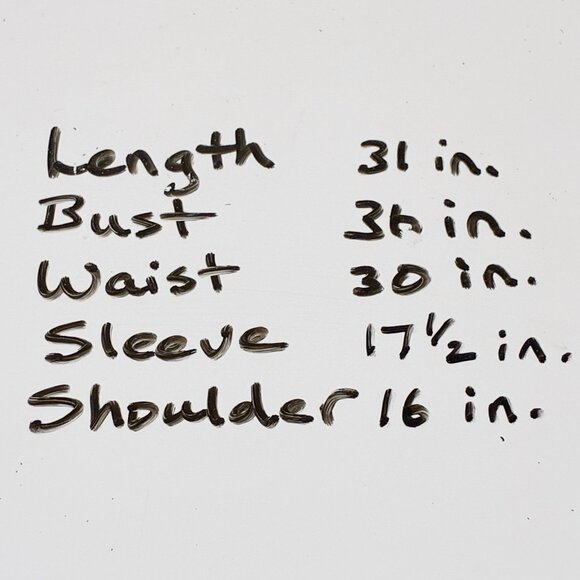 Length 31 in.
Bust 36 in.
Waist 30 in.
Sleeve 17 1/2 in.
Shoulder 16 in.